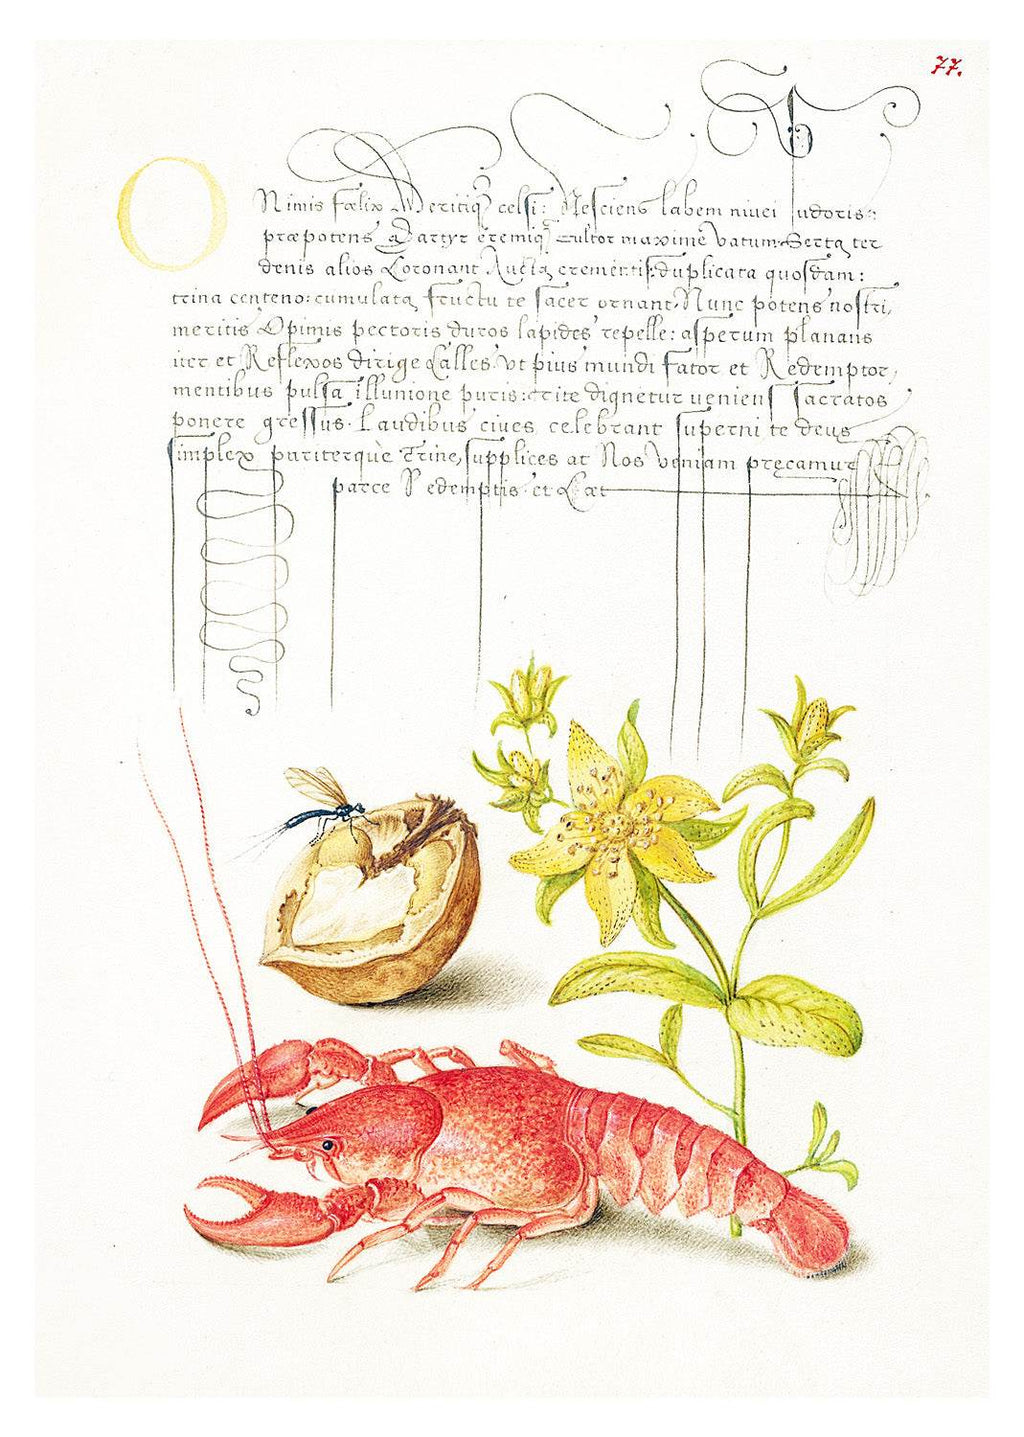 77.
O Nimis fælix Meritiq3 celsi: Nesciens labem niuei pudoris:
præpotens Martyr eremiq3 Cultor maxime Vatum. Serta ter
denis alios Coronant Aucta crementis: duplicata quosdam:
trina centeno: cumulata fructu te sacer ornant. Nunc potens nostri,
meritis Opimis pectoris duros lapides repelle: asperum planans
iter et Reflexos dirige Calles. Vt pius mundi Sator et Redemptor,
mentibus pulsa illunione puris: rite dignetur ueniens sacratos
ponere gressus. Laudibus ciues celebrant superni te deus
simplex pariterquè Trine, supplices at Nos Veniam precamur
parce Redemptis. et Cæt